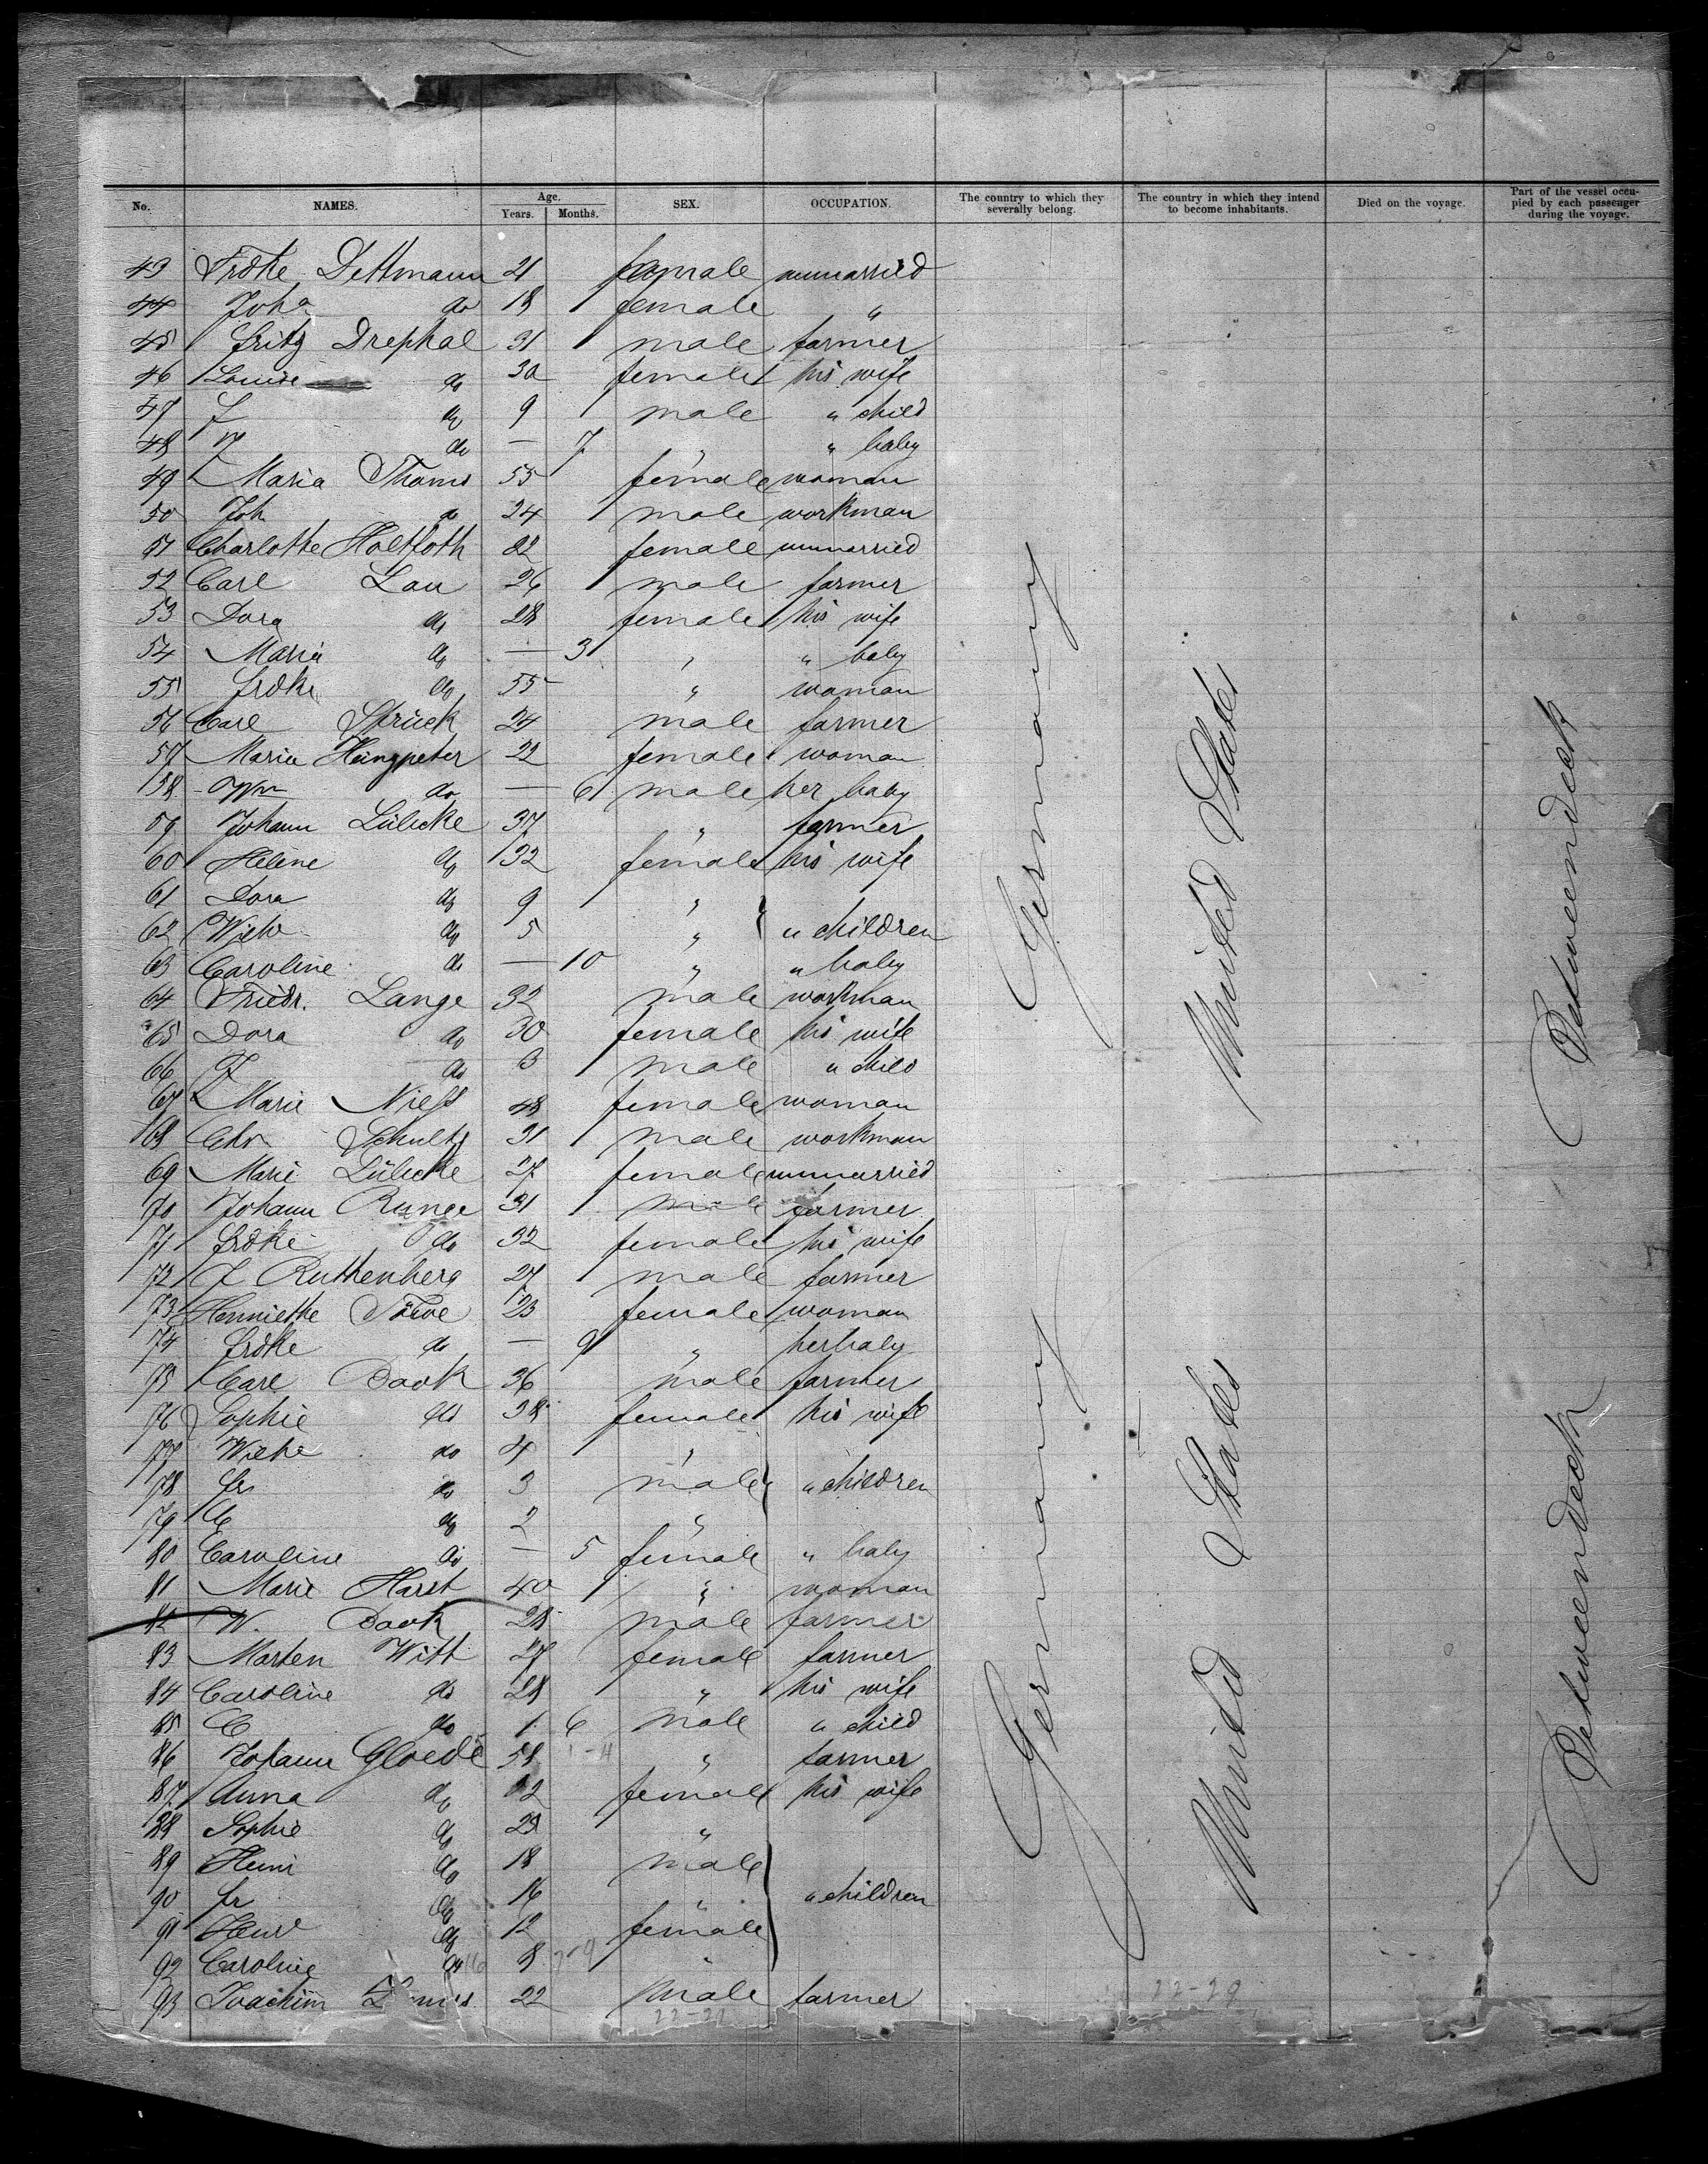 No. NAMES. Age. Years. Months. SEX. OCCUPATION. The country to which they severally belong. The country in which they intend to become inhabitants. Died on the voyage. Part of the vessel occupied by each passenger during the voyage.
43 Frdke Dettmann 21 female unmarried
44 Joha do 18 female "
45 Fritz Drephal 31 male farmer
46 Louise do 30 female his wife
47 F do 9 male " child
48 do — 7 " " baby
49 Maria Thoms 55 female woman
50 Joh do 24 male workman
51 Charlotte Holtfoth 22 female unmarried
52 Carl Lau 26 male farmer
53 Dora do 28 female his wife
54 Maria do — 3 " " baby
55 Frdke do 55 " woman
56 Carl Strück 24 male farmer
57 Maria Hüngpeter 22 female woman
58 Wm do — 6 male her baby
59 Johann Lübcke 37 " farmer
60 Helene do 32 female his wife
61 Dora do 9 "
62 Wilh do 5 " " children
63 Caroline do — 10 " " baby
64 Friedr. Lange 32 male workman
65 Dora do 30 female his wife
66 F do 3 male " child
67 Marie Niess 48 female woman
68 Chr Schultz 31 male workman
69 Marie Lübcke 27 female unmarried
70 Johann Runge 31 male farmer
71 Frdke do 32 female his wife
72 J Ruthenberg 27 male farmer
73 Henriette Stüwe 23 female woman
74 Frdke do — 9 " her baby
75 Carl Baok 36 male farmer
76 Sophie do 38 female his wife
77 Wilhe do 4 "
78 Fr do 3 male " children
79 C do 2 "
80 Caroline do — 5 female " baby
81 Marie Harst 40 " woman
82 W. Baok 28 male farmer
83 Marten Witt 27 female farmer
84 Caroline do 28 " his wife
85 C do 1 6 male " child
86 Johann Gloede 58 " farmer
87 Anna do 52 female his wife
88 Sophie do 23 "
89 Heinr do 18 male
90 Fr do 16 " " children
91 Henr do 12 female
92 Caroline do 8 "
93 Joachim 22 male farmer
22-29
Germany
United States
Betweendeck
Germany
United States
Betweendeck